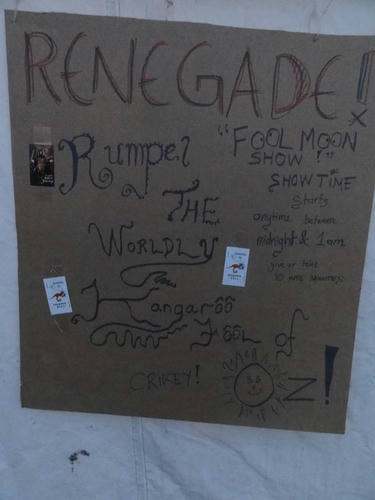 RENEGADE!
Rumpel
THE
WORLDLY
Kangarôô
FôôL of
OZ!
CRIKEY!
"FOOL MOON
SHOW!"
SHOWTIME
Starts
anytime between
midnight & 1am
give or take